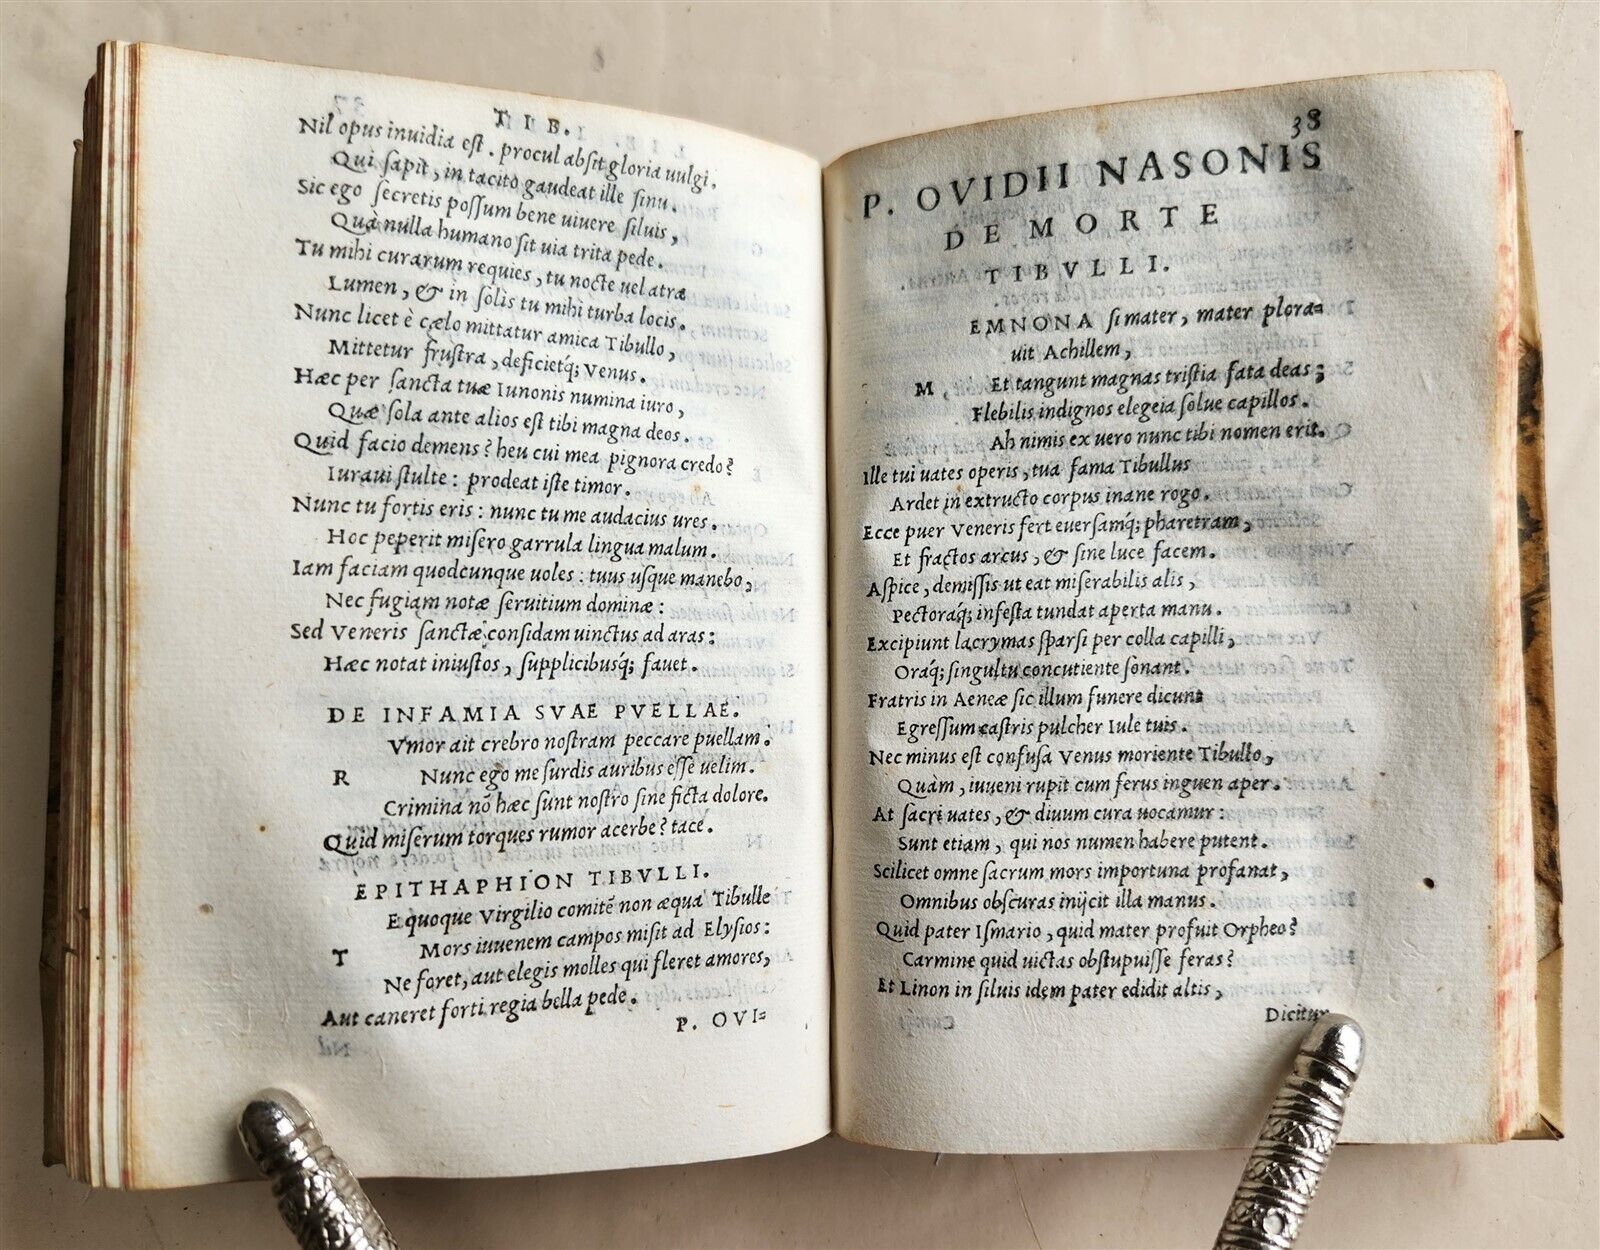 TIB.
Nil opus inuidia eſt. procul abſit gloria uulgi.
Qui ſapit, in tacito gaudeat ille ſinu.
Sic ego ſecretis poſſum bene uiuere ſiluis,
Quà nulla humano ſit uia trita pede.
Tu mihi curarum requies, tu nocte uel atra
Lumen, & in ſolis tu mihi turba locis.
Nunc licet è cælo mittatur amica Tibullo,
Mittetur fruſtra, deficietq́; Venus.
Hæc per ſancta tuæ Iunonis numina iuro,
Quæ ſola ante alios eſt tibi magna deos.
Quid facio demens? heu cui mea pignora credo?
Iuraui ſtulte: prodeat iſte timor.
Nunc tu fortis eris: nunc tu me audacius ures.
Hoc peperit miſero garrula lingua malum.
Iam faciam quodcunque uoles: tuus uſque manebo,
Nec fugiam notæ ſeruitium dominæ:
Sed Veneris ſanctæ conſidam uinctus ad aras:
Hæc notat iniuſtos, ſupplicibusq́; fauet.
DE INFAMIA SVAE PVELLAE.
Vmor ait crebro noſtram peccare puellam.
R Nunc ego me ſurdis auribus eſſe uelim.
Crimina nō hæc ſunt noſtro ſine ficta dolore.
Quid miſerum torques rumor acerbe? tace.
EPITHAPHION TIBVLLI.
E quoque Virgilio comitē non æqua Tibulle
T Mors iuuenem campos miſit ad Elyſios:
Ne foret, aut elegis molles qui fleret amores,
Aut caneret forti regia bella pede.
P. OVI=
38
P. OVIDII NASONIS
DE MORTE
TIBVLLI.
EMNONA ſi mater, mater plora=
uit Achillem,
M Et tangunt magnas triſtia fata deas;
Flebilis indignos elegeia ſolue capillos.
Ah nimis ex uero nunc tibi nomen erit.
Ille tui uates operis, tua fama Tibullus
Ardet in extructo corpus inane rogo.
Ecce puer Veneris fert euerſamq́; pharetram,
Et fractos arcus, & ſine luce facem.
Aſpice, demiſſis ut eat miſerabilis alis,
Pectoraq́; infeſta tundat aperta manu.
Excipiunt lacrymas ſparſi per colla capilli,
Oraq́; ſingultu concutiente ſonant.
Fratris in Aeneæ ſic illum funere dicunt
Egreſſum caſtris pulcher Iule tuis.
Nec minus eſt confuſa Venus moriente Tibullo,
Quàm, iuueni rupit cum ferus inguen aper.
At ſacri uates, & diuum cura uocamur:
Sunt etiam, qui nos numen habere putent.
Scilicet omne ſacrum mors importuna profanat,
Omnibus obſcuras inijcit illa manus.
Quid pater Iſmario, quid mater profuit Orpheo?
Carmine quid uictas obſtupuiſſe feras?
Et Linon in ſiluis idem pater edidit altis,
Dicitur